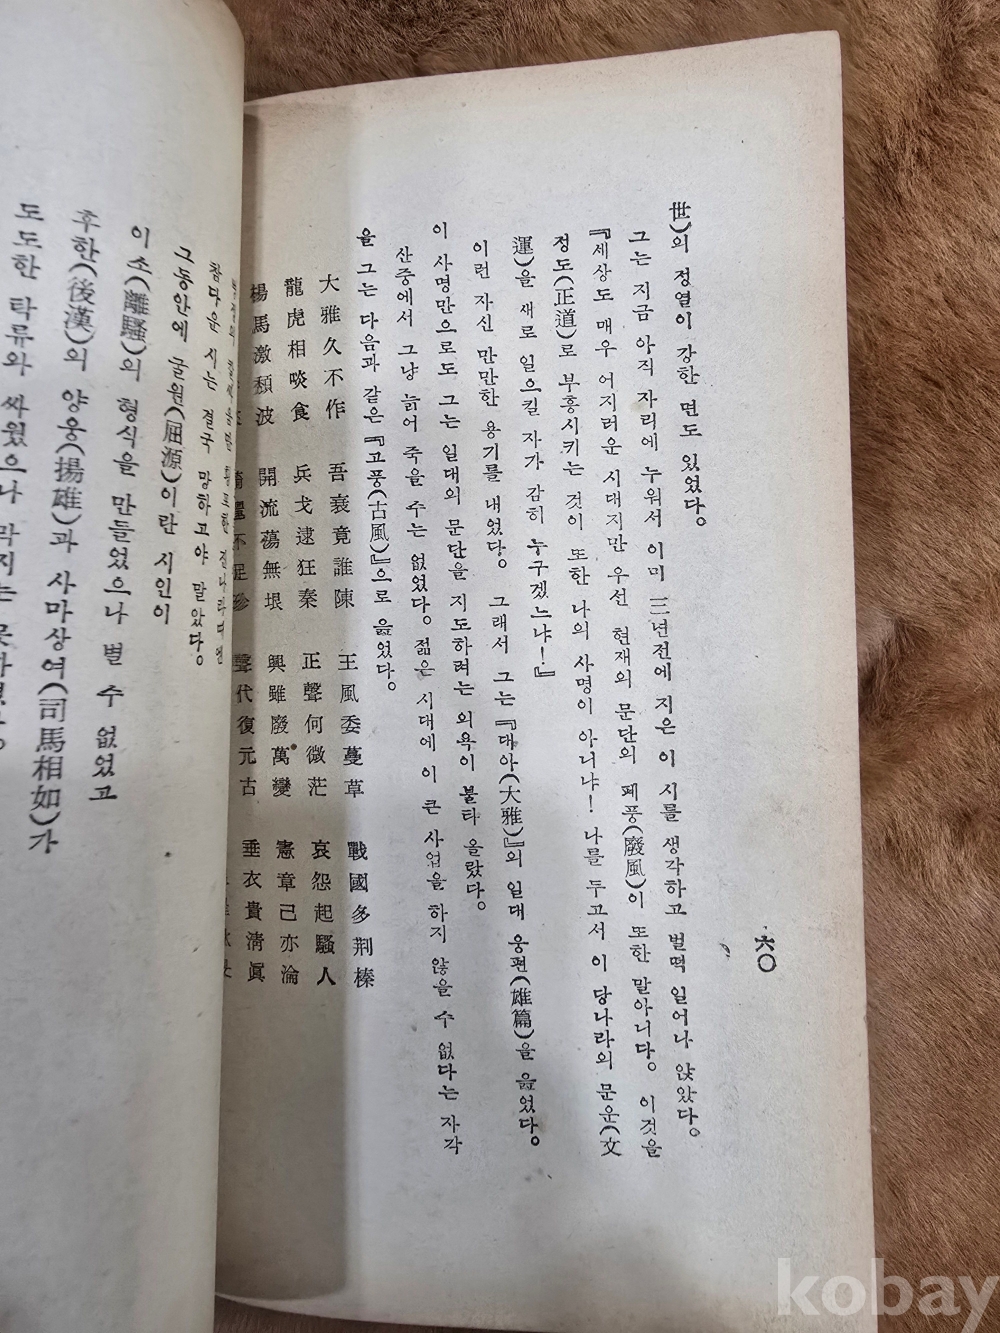 六〇
世)의 정열이 강한 면도 있었다。
그는 지금 아직 자리에 누워서 이미 三년전에 지은 이 시를 생각하고 벌떡 일어나 앉았다。
『세상도 매우 어지러운 시대지만 우선 현재의 문단의 폐풍(廢風)이 또한 말아니다。 이것을
정도(正道)로 부흥시키는 것이 또한 나의 사명이 아니냐! 나를 두고서 이 당나라의 문운(文
運)을 새로 일으킬 자가 감히 누구겠느냐!』
이런 자신 만만한 용기를 내었다。 그래서 그는『대아(大雅)』의 일대 웅편(雄篇)을 읊었다。
이 사명만으로도 그는 일대의 문단을 지도하려는 의욕이 불타 올랐다。
산중에서 그냥 늙어 죽을 수는 없었다。 젊은 시대에 이 큰 사업을 하지 않을 수 없다는 자각
을 그는 다음과 같은『고풍(古風)』으로 읊었다。
大雅久不作 吾衰竟誰陳 王風委蔓草 戰國多荆榛
龍虎相啖食 兵戈逮狂秦 正聲何微茫 哀怨起騷人
楊馬激頽波 開流蕩無垠 興雖廢萬變 憲章已亦淪
不足珍 聲代復元古 垂衣貴淸眞
참다운 시는 결국 망하고야 말았다。
그동안에 굴원(屈源)이란 시인이
이소(離騷)의 형식을 만들었으나 별 수 없었고
후한(後漢)의 양웅(揚雄)과 사마상여(司馬相如)가
도도한 탁류와 싸웠으나 막지는 못하였다。